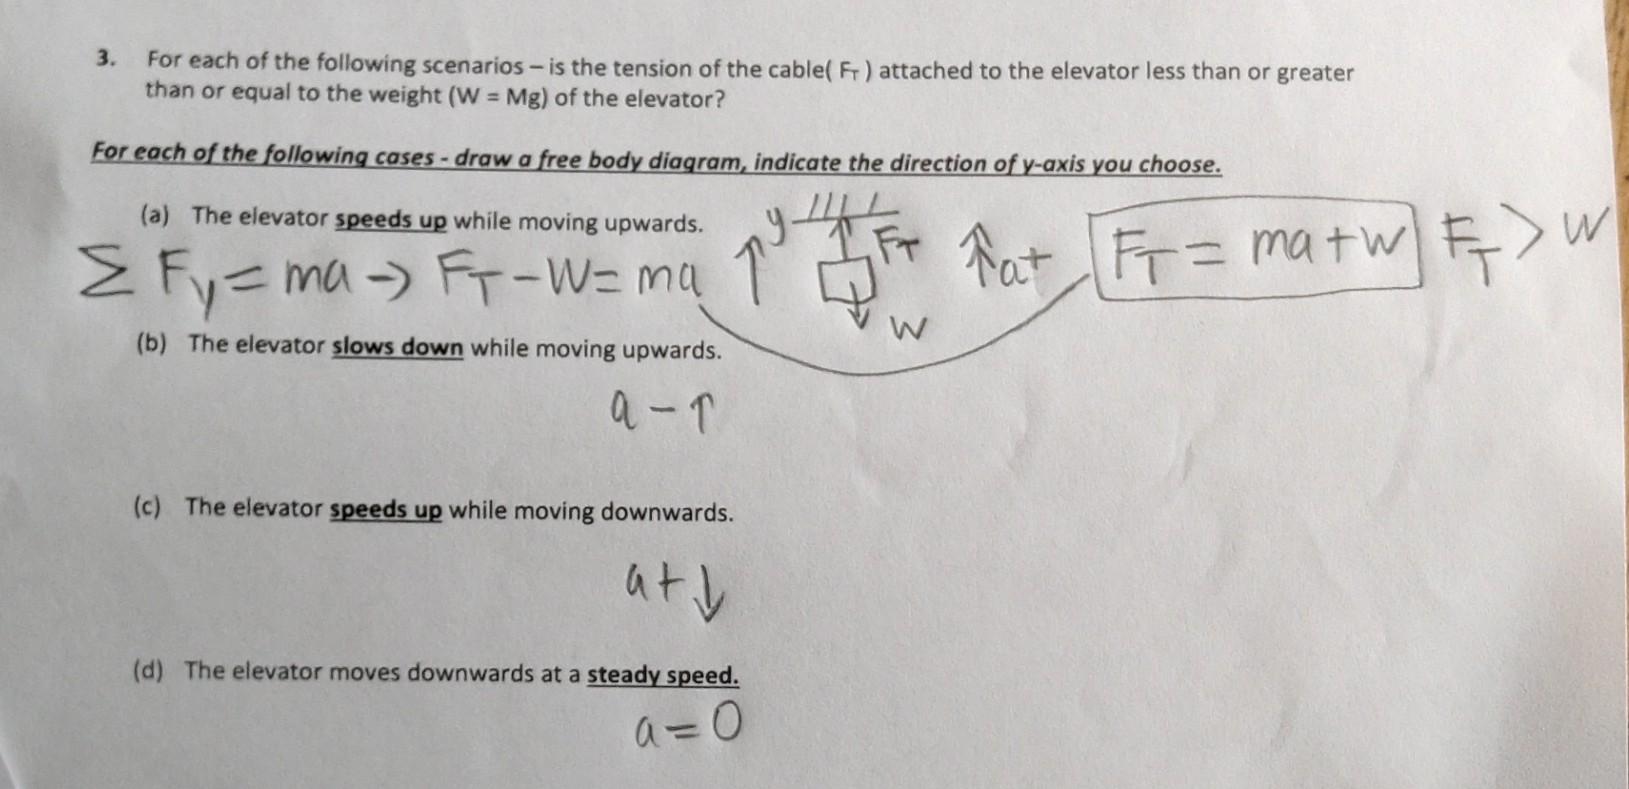 3. For each of the following scenarios – is the tension of the cable( F_T ) attached to the elevator less than or greater
than or equal to the weight (W = Mg) of the elevator?
For each of the following cases - draw a free body diagram, indicate the direction of y-axis you choose.
(a) The elevator speeds up while moving upwards.
Σ F_y = ma → F_T - W = ma ↑ y F_T W ↑ a+ F_T = ma + W F_T > W
(b) The elevator slows down while moving upwards.
a - ↑
(c) The elevator speeds up while moving downwards.
a + ↓
(d) The elevator moves downwards at a steady speed.
a = 0